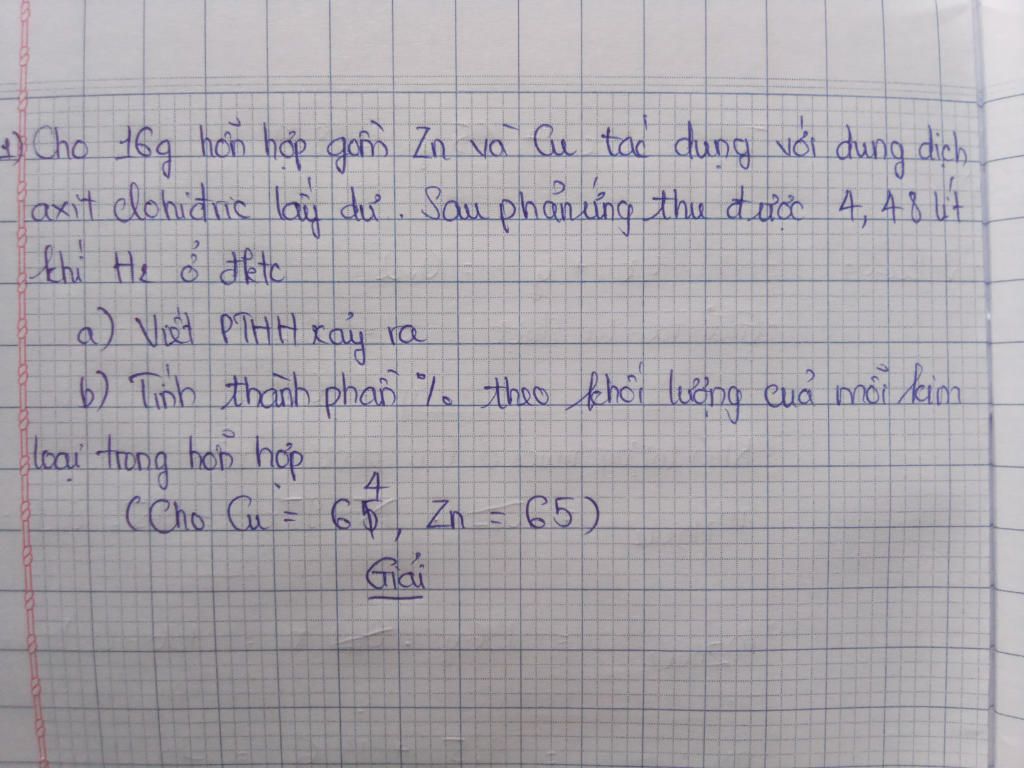 1) Cho 16g hỗn hợp gồm Zn và Cu tác dụng với dung dịch
axit clohiđric lấy dư. Sau phản ứng thu được 4,48 lít
khí H₂ ở đktc
a) Viết PTHH xảy ra
b) Tính thành phần % theo khối lượng của mỗi kim
loại trong hỗn hợp
(Cho Cu = 64, Zn = 65)
Giải